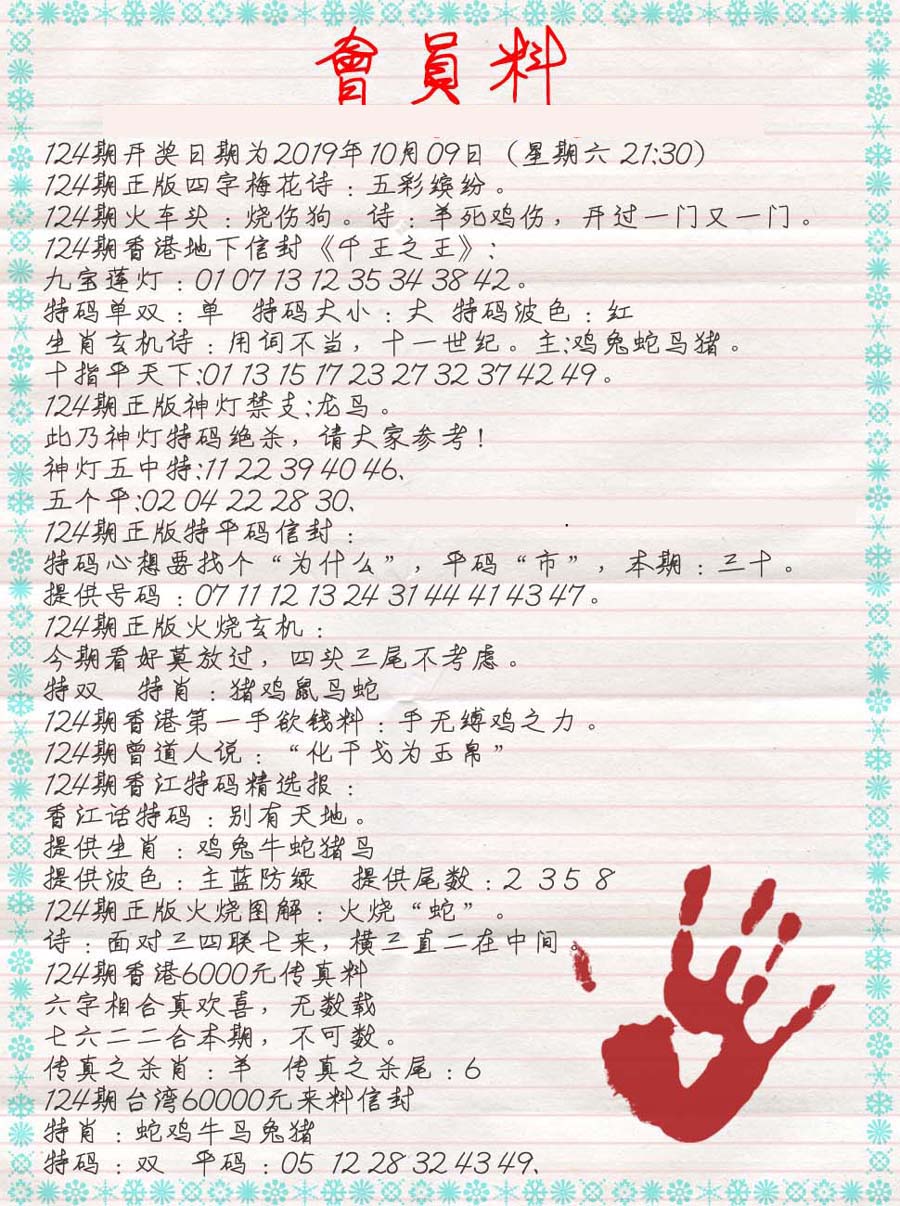 會員料
124期开奖日期为2019年10月09日（星期六 21:30）
124期正版四字梅花诗：五彩缤纷。
124期火车头：烧伤狗。诗：羊死鸡伤，开过一门又一门。
124期香港地下信封《千王之王》：
九宝莲灯：01 07 13 12 35 34 38 42。
特码单双：单 特码大小：大 特码波色：红
生肖玄机诗：用词不当，十一世纪。主:鸡兔蛇马猪。
十指平天下:01 13 15 17 23 27 32 37 42 49。
124期正版神灯禁支:龙马。
此乃神灯特码绝杀，请大家参考！
神灯五中特:11 22 39 40 46、
五个平:02 04 22 28 30、
124期正版特平码信封：
特码心想要找个“为什么”，平码“市”，本期：三十。
提供号码：07 11 12 13 24 31 44 41 43 47。
124期正版火烧玄机：
今期看好莫放过，四头三尾不考虑。
特双 特肖：猪鸡鼠马蛇
124期香港第一手欲钱料：手无缚鸡之力。
124期曾道人说：“化干戈为玉帛”
124期香江特码精选报：
香江话特码：别有天地。
提供生肖：鸡兔牛蛇猪马
提供波色：主蓝防绿 提供尾数：2 3 5 8
124期正版火烧图解：火烧“蛇”。
诗：面对三四联七来，横三直二在中间。
124期香港6000元传真料
六字相合真欢喜，无数载
七六二二合本期，不可数。
传真之杀肖：羊 传真之杀尾：6
124期台湾60000元来料信封
特肖：蛇鸡牛马兔猪
特码：双 平码：05 12 28 32 43 49、